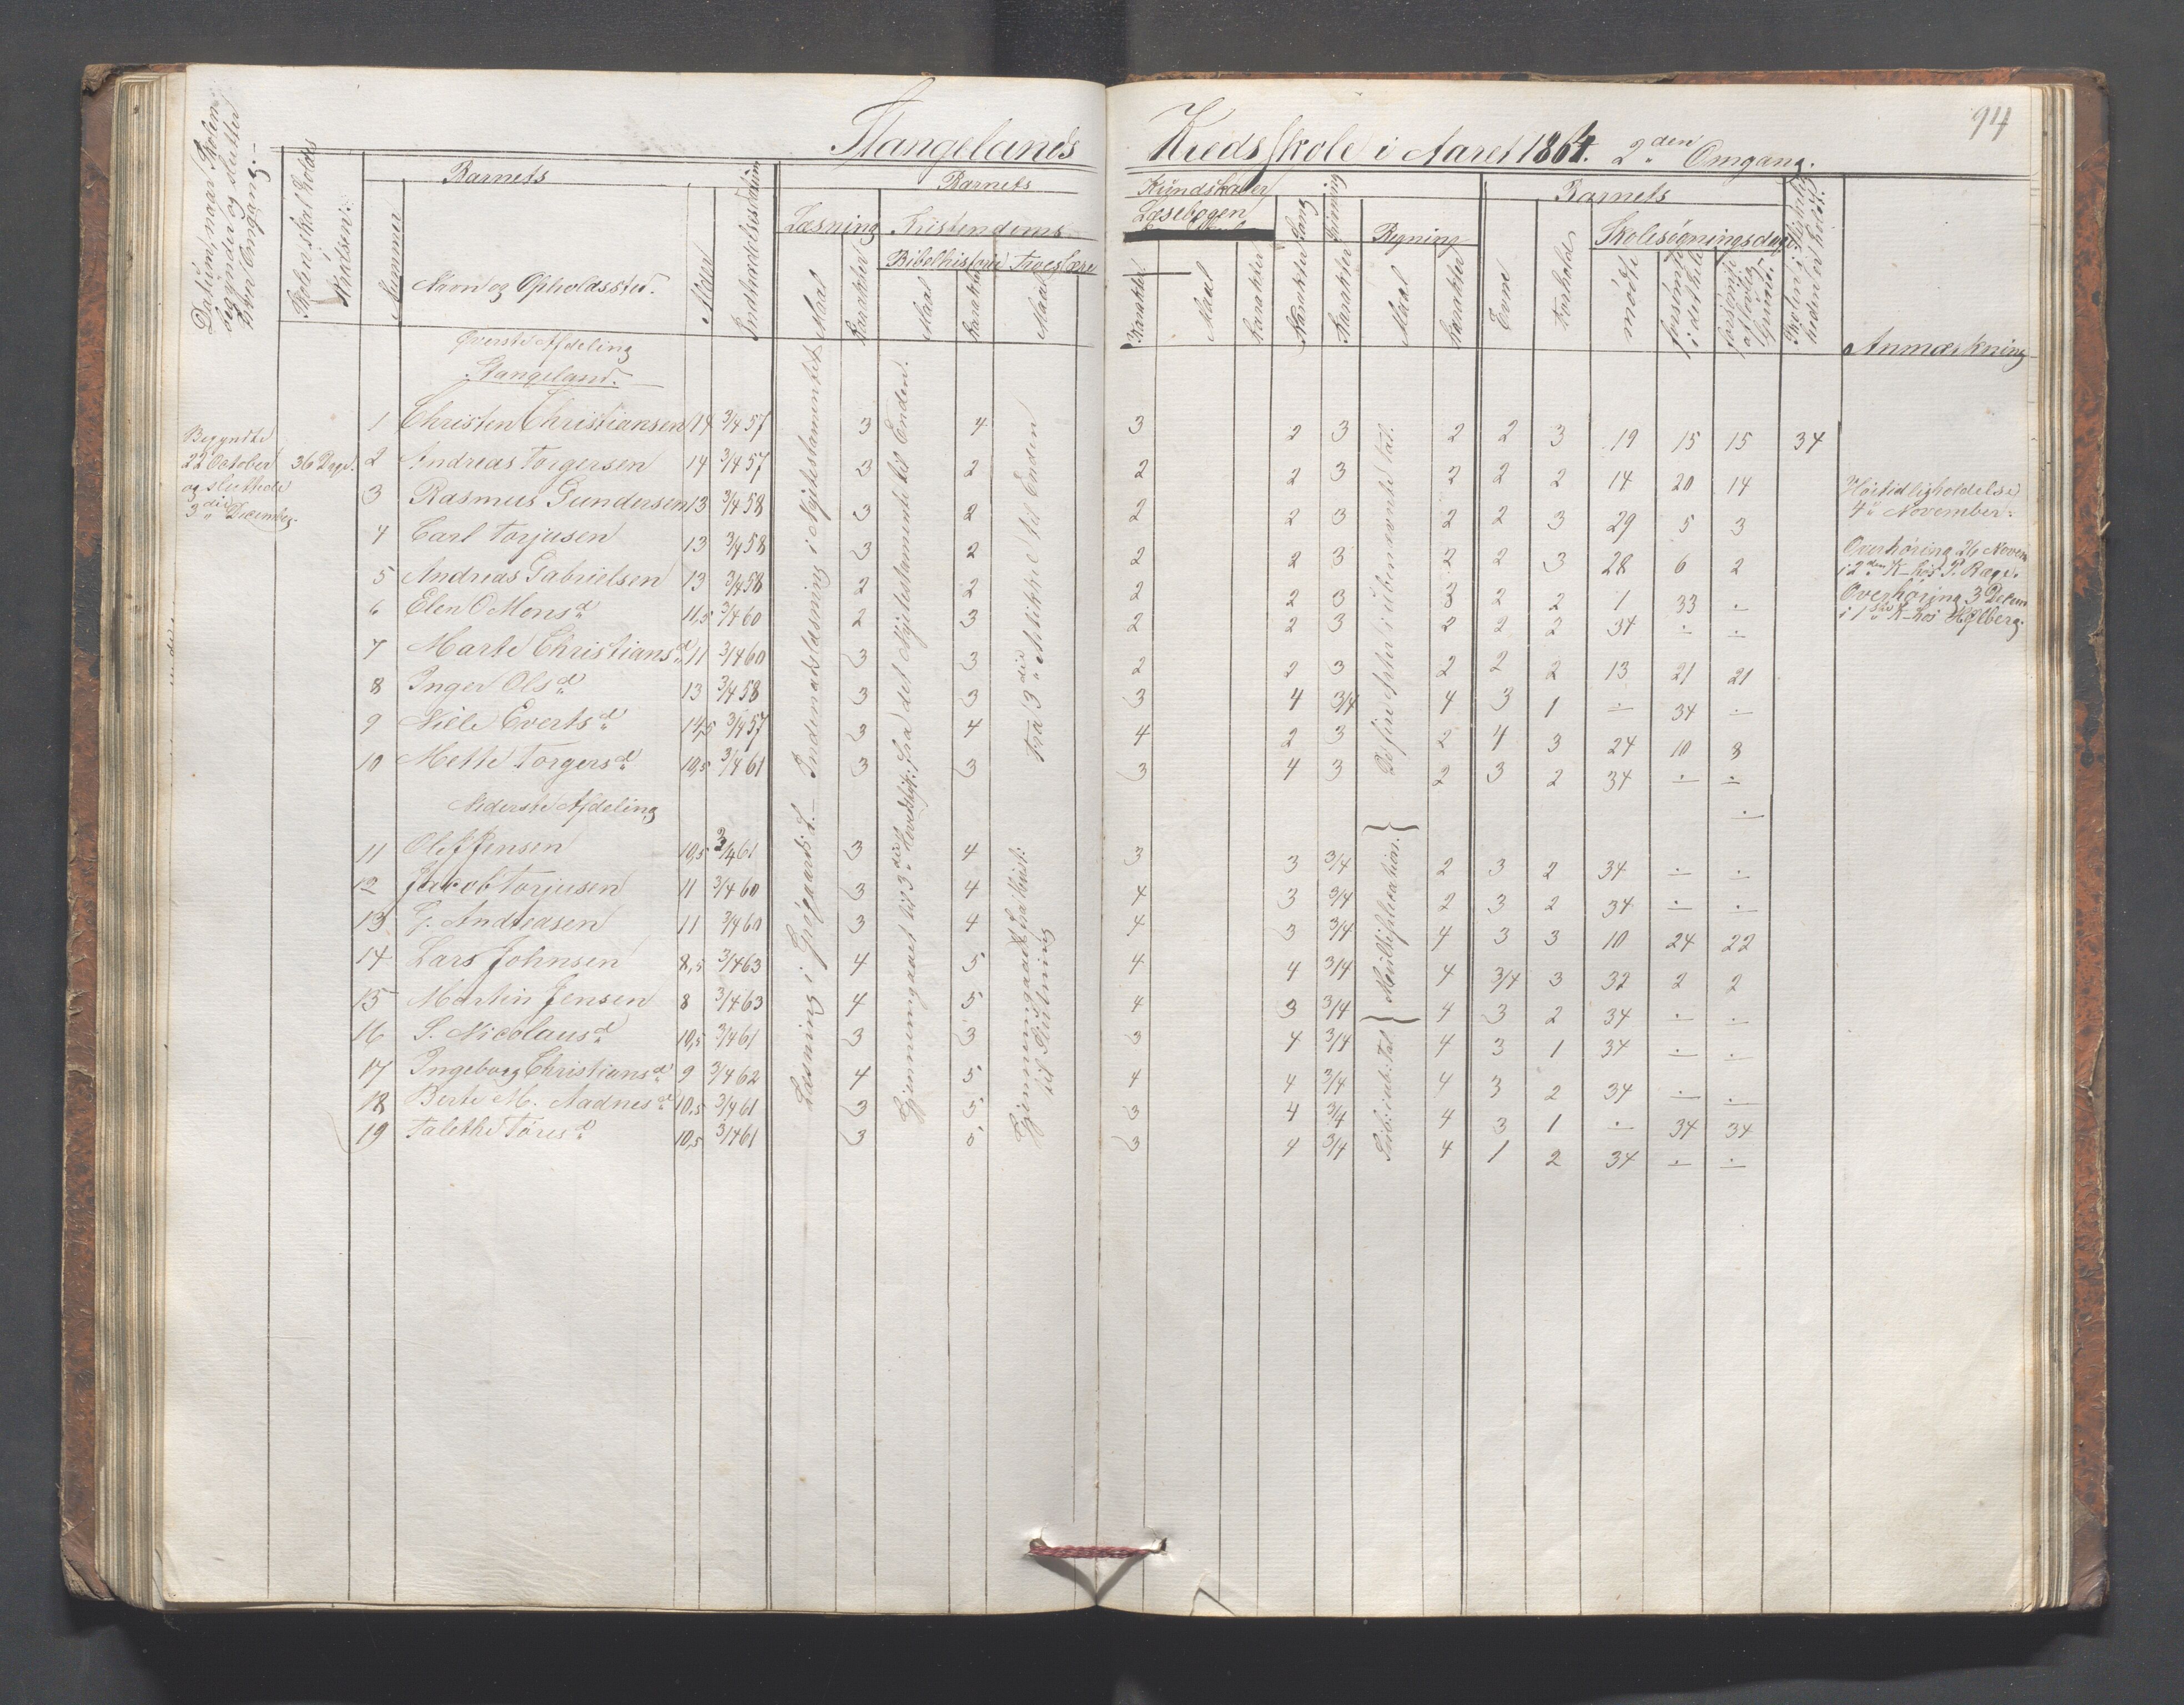 94
Stangelands Kredsskole i Aaret 1864. 2den Omgang.
Datum, naar Skolen begynder og slutter hver Omgang.
Skolen skal holdes
Nummer
Barnets
Navn og Opholdssted.
Alder
Indtrædelsesdatum
Barnets
Læsning
Maal
Karakter
Kristendoms
Bibelhistorie
Maal
Karakter
Troeslære
Maal
Kundskaber
Karakter
Læsebogen
Maal
Karakter
Sang
Karakter
Skrivning
Karakter
Regning
Maal
Karakter
Barnets
Evne
Forhold
Skolesøgningsdage
mødt
forsømt i det hele
forsømt af lovlig Grund
Skolen i Virkeligheden er holdt.
Anmærkning
Øverste Afdeling
Stangeland.
Begyndte
22 October
og sluttede
3die December.
36 Dage.
1 Christen Christiansen 14 3/4 57 3 4 3 2 3 2 2 3 19 15 15 34
2 Andreas Torgersen 14 3/4 57 3 2 2 2 3 2 2 2 14 20 14
3 Rasmus Gundersen 13 3/4 58 3 2 2 2 3 2 2 3 29 5 3
4 Carl Torjusen 13 3/4 58 3 2 2 2 3 2 2 3 28 6 2
5 Andreas Gabrielsen 13 3/4 58 2 2 2 2 3 3 2 2 1 33 ÷
6 Elen O Monsd 11,5 3/4 60 2 3 2 2 3 2 2 2 34 ÷ ÷
7 Marte Christiansd 11 3/4 60 3 3 2 2 3 2 2 2 13 21 21
8 Inger Olsd 13 3/4 58 3 3 3 4 3/4 4 3 1 ÷ 34 ÷
9 Nille Evertsd 14,5 3/4 57 3 4 4 2 3 2 4 3 24 10 8
10 Mette Torgersd 10,5 3/4 61 3 3 3 4 3 2 3 2 34 ÷ ÷
Nederste Afdeling
÷
11 Ole J Jensen 10,5 3/4 61 3 4 3 3 3/4 2 3 2 34 ÷ ÷
12 Jacob Torjusen 11 3/4 60 3 4 4 3 3/4 2 3 2 34 ÷ ÷
13 G. Andreasen 11 3/4 60 3 4 4 3 3/4 4 3 3 10 24 22
14 Lars Johnsen 8,5 3/4 63 4 5 4 4 3/4 4 3/4 3 32 2 2
15 Martin Jensen 8 3/4 63 4 5 4 3 3/4 4 3 2 34 ÷ ÷
16 S. Nicolausd 10,5 3/4 61 3 3 3 4 3/4 4 3 1 34 ÷ ÷
17 Ingeborg Christiansd 9 3/4 62 4 5 4 4 3/4 4 3 2 34 ÷ ÷
18 Berte M. Aadnesd 10,5 3/4 61 3 5 3 4 3/4 4 3 1 ÷ 34 34
19 Talethe Toresd 10,5 3/4 61 3 5 3 4 3/4 4 1 2 34 ÷ ÷
Læsning i Grøgaards L. — Indenadslæsning i Nytestamentet
Gjennemgaaet til 3die Hovedst: Fra det Nytestamente til Enden.
Gjennemgaaet
til Slutning
fra 3die Artikkel til Enden
De fire Arter i ubenævnte Tal.
Multiplication.
Høitidligholdelse
4de November.
Overhøring 26 Novem
i 2den K- hos P. Rege.
Overhøring 3 Decem
i 1ste K- hos Kjølberg.